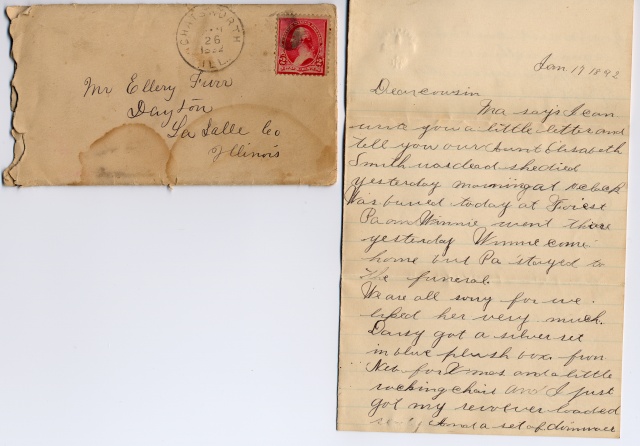 CHATSWORTH
26
ILL.
2 2
Mr Ellery Furr
Dayton
La Salle Co
Illinois
Jan 17 1892
Dear cousin
Ma says I can
write you a little letter and
tell you our Aunt Elisabeth
Smith was dead she died
yesterday morning at oclock
Was buried today at Forest
Pa and Winnie went there
yesterday Winnie come
home but Pa stayed to
the funeral.
We are all sorry for we
liked her very much.
Daisy got a silver set
in blue plush box from
Neb for Xmas and a little
rocking chair and I just
got my revolver loaded
and a set of dominoes